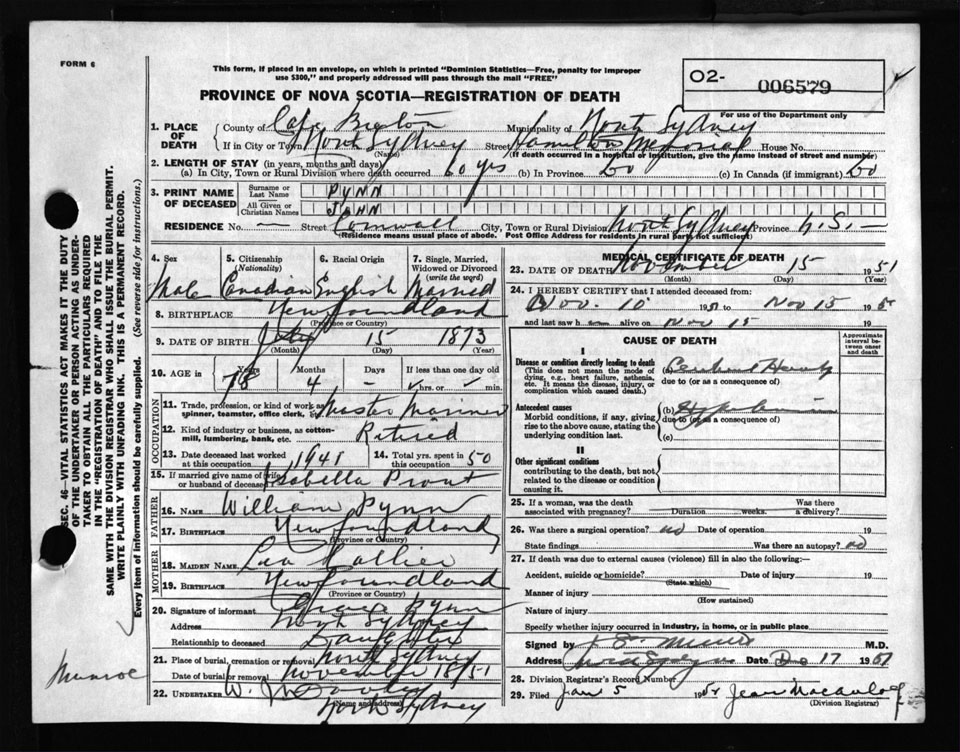 FORM 6
This form, if placed in an envelope, on which is printed "Dominion Statistics—Free, penalty for improper
use $300," and properly addressed will pass through the mail "FREE"
PROVINCE OF NOVA SCOTIA—REGISTRATION OF DEATH
02-
006579
For use of the Department only
SEC. 46—VITAL STATISTICS ACT MAKES IT THE DUTY
OF THE UNDERTAKER OR PERSON ACTING AS UNDER-
TAKER TO OBTAIN ALL THE PARTICULARS REQUIRED
IN THE "REGISTRATION OF DEATH" AND TO FILE THE
SAME WITH THE DIVISION REGISTRAR WHO SHALL ISSUE THE BURIAL PERMIT.
WRITE PLAINLY WITH UNFADING INK. THIS IS A PERMANENT RECORD.
Every item of information should be carefully supplied. (See reverse side for instructions.)
1. PLACE OF DEATH
County of Cape Breton Municipality of North Sydney
If in City or Town North Sydney Street Hamilton Memorial House No.
(Name) (If death occurred in a hospital or institution, give the name instead of street and number)
2. LENGTH OF STAY (in years, months and days)
(a) In City, Town or Rural Division where death occurred 60 yrs (b) In Province 60 (c) In Canada (if immigrant) 60
3. PRINT NAME OF DECEASED
Surname or Last Name PYNN
All Given or Christian Names JOHN
RESIDENCE No. — Street Cornwall City, Town or Rural Division North Sydney Province N.S. —
(Residence means usual place of abode. Post Office Address for residents in rural parts not sufficient)
4. Sex Male
5. Citizenship (Nationality) Canadian
6. Racial Origin English
7. Single, Married, Widowed or Divorced (write the word) Married
8. BIRTHPLACE Newfoundland
(Province or Country)
9. DATE OF BIRTH July 15 1873
(Month) (Day) (Year)
10. AGE in Years 78 Months 4 Days – If less than one day old – hrs. or – min.
OCCUPATION
11. Trade, profession, or kind of work as spinner, teamster, office clerk, Master Mariner
12. Kind of industry or business, as cotton-mill, lumbering, bank, etc. Retired
13. Date deceased last worked at this occupation 1941
14. Total yrs. spent in this occupation 50
15. If married give name of wife or husband of deceased Isabella Prout
FATHER
16. NAME William Pynn
17. BIRTHPLACE Newfoundland
(Province or Country)
MOTHER
18. MAIDEN NAME
19. BIRTHPLACE Newfoundland
(Province or Country)
20. Signature of informant Pynn
Address North Sydney
Relationship to deceased Daughter
21. Place of burial, cremation or removal North Sydney
Date of burial or removal November 18/51
22. UNDERTAKER W. J.
(Name and address)
North Sydney
Munroe
MEDICAL CERTIFICATE OF DEATH
23. DATE OF DEATH November 15 1951
(Month) (Day) (Year)
24. I HEREBY CERTIFY that I attended deceased from:
Nov. 10 1951 to Nov 15 195
and last saw h alive on Nov 15 195
CAUSE OF DEATH
Approximate interval between onset and death
I
Disease or condition directly leading to death
(This does not mean the mode of dying, e.g., heart failure, asthenia, etc. It means the disease, injury, or complication which caused death.)
(a)
due to (or as a consequence of)
Antecedent causes
Morbid conditions, if any, giving rise to the above cause, stating the underlying condition last.
(b)
due to (or as a consequence of)
(c)
II
Other significant conditions
contributing to the death, but not related to the disease or condition causing it.
25. If a woman, was the death associated with pregnancy? Duration weeks. Was there a delivery?
26. Was there a surgical operation? no Date of operation 19
State findings Was there an autopsy? no
27. If death was due to external causes (violence) fill in also the following:
Accident, suicide or homicide? Date of injury 19
(State which)
Manner of injury
(How sustained)
Nature of injury
Specify whether injury occurred in industry, in home, or in public place
Signed by M.D.
Address Date Dec 17 1951
28. Division Registrar's Record Number
29. Filed Jan 5 1952 Jean
(Division Registrar)